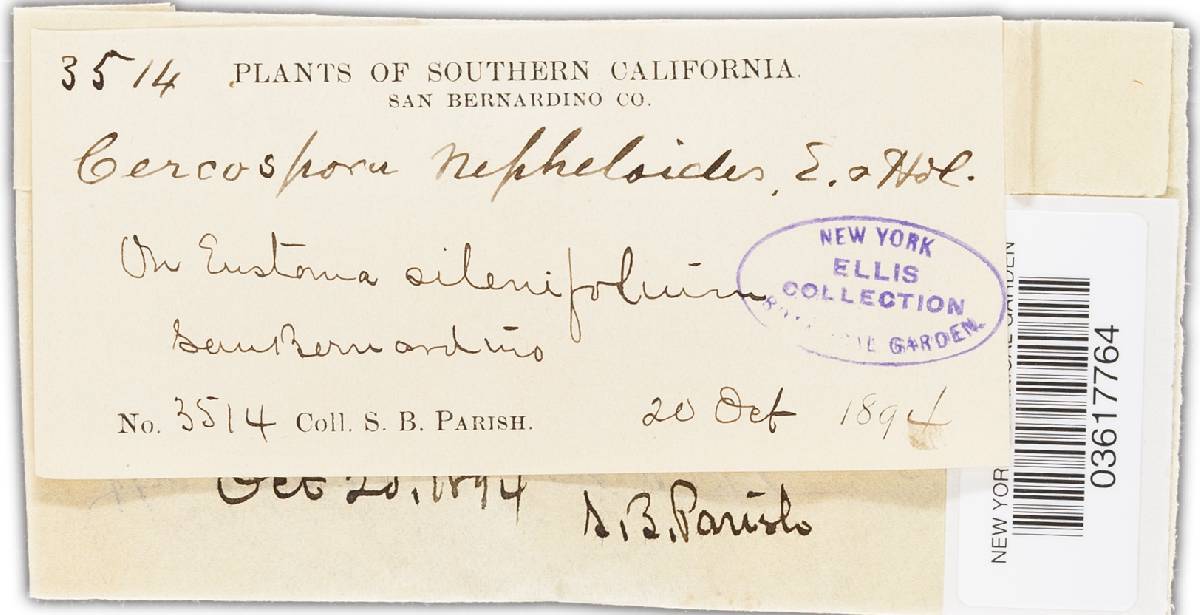 3514 PLANTS OF SOUTHERN CALIFORNIA.
SAN BERNARDINO CO.
Cercospora Nepheloides, E. & Hol.
On Eustoma silenifolium
San Bernardino
NEW YORK
ELLIS
COLLECTION
GARDEN.
No. 3514 Coll. S. B. PARISH. 20 Oct 1894
Oct 20, 1894
S. B. Parish
NEW YOR
GARDEN
03617764